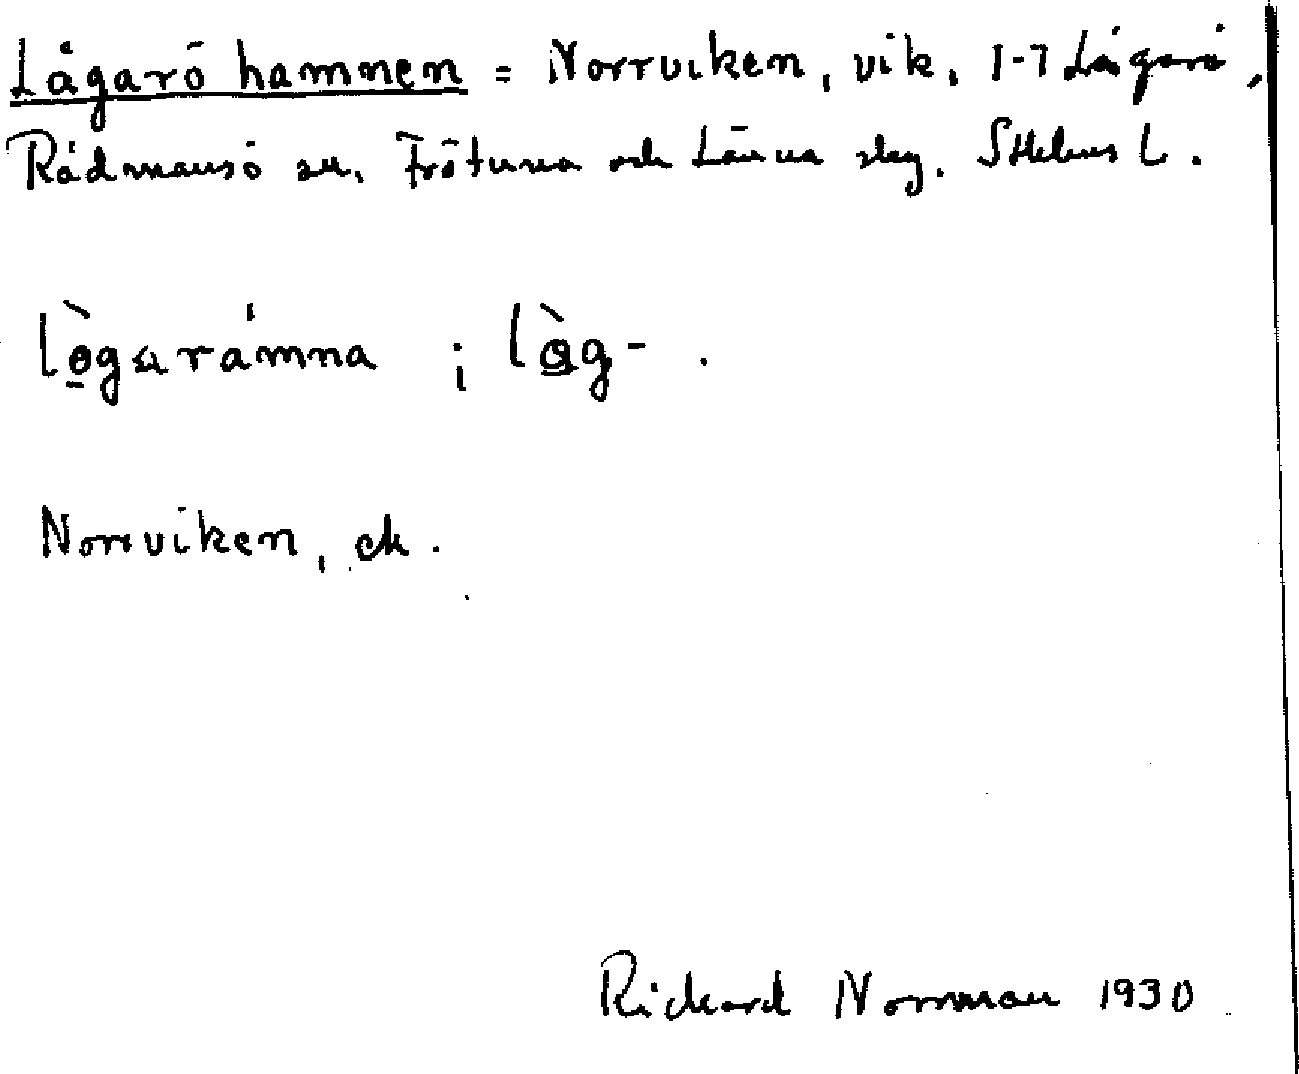 Lågarö hamnen = Norrviken, vik, 1-7 Lågarö,
Rådmansö sn, Frötuna och Länna skg. Sthlms L.
lògarámna ; lòg- .
Norrviken, ek.
Rickard Norrman 1930